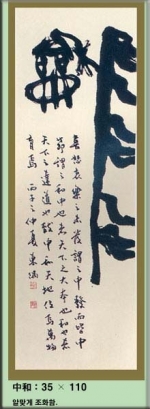 喜怒哀樂之未發謂之中發而皆中
節謂之和中也者天下之大本也和也者
天下之達道也致中和天地位焉萬物
育焉 丙子之仲夏
中和 : 35 × 110
알맞게 조화함.